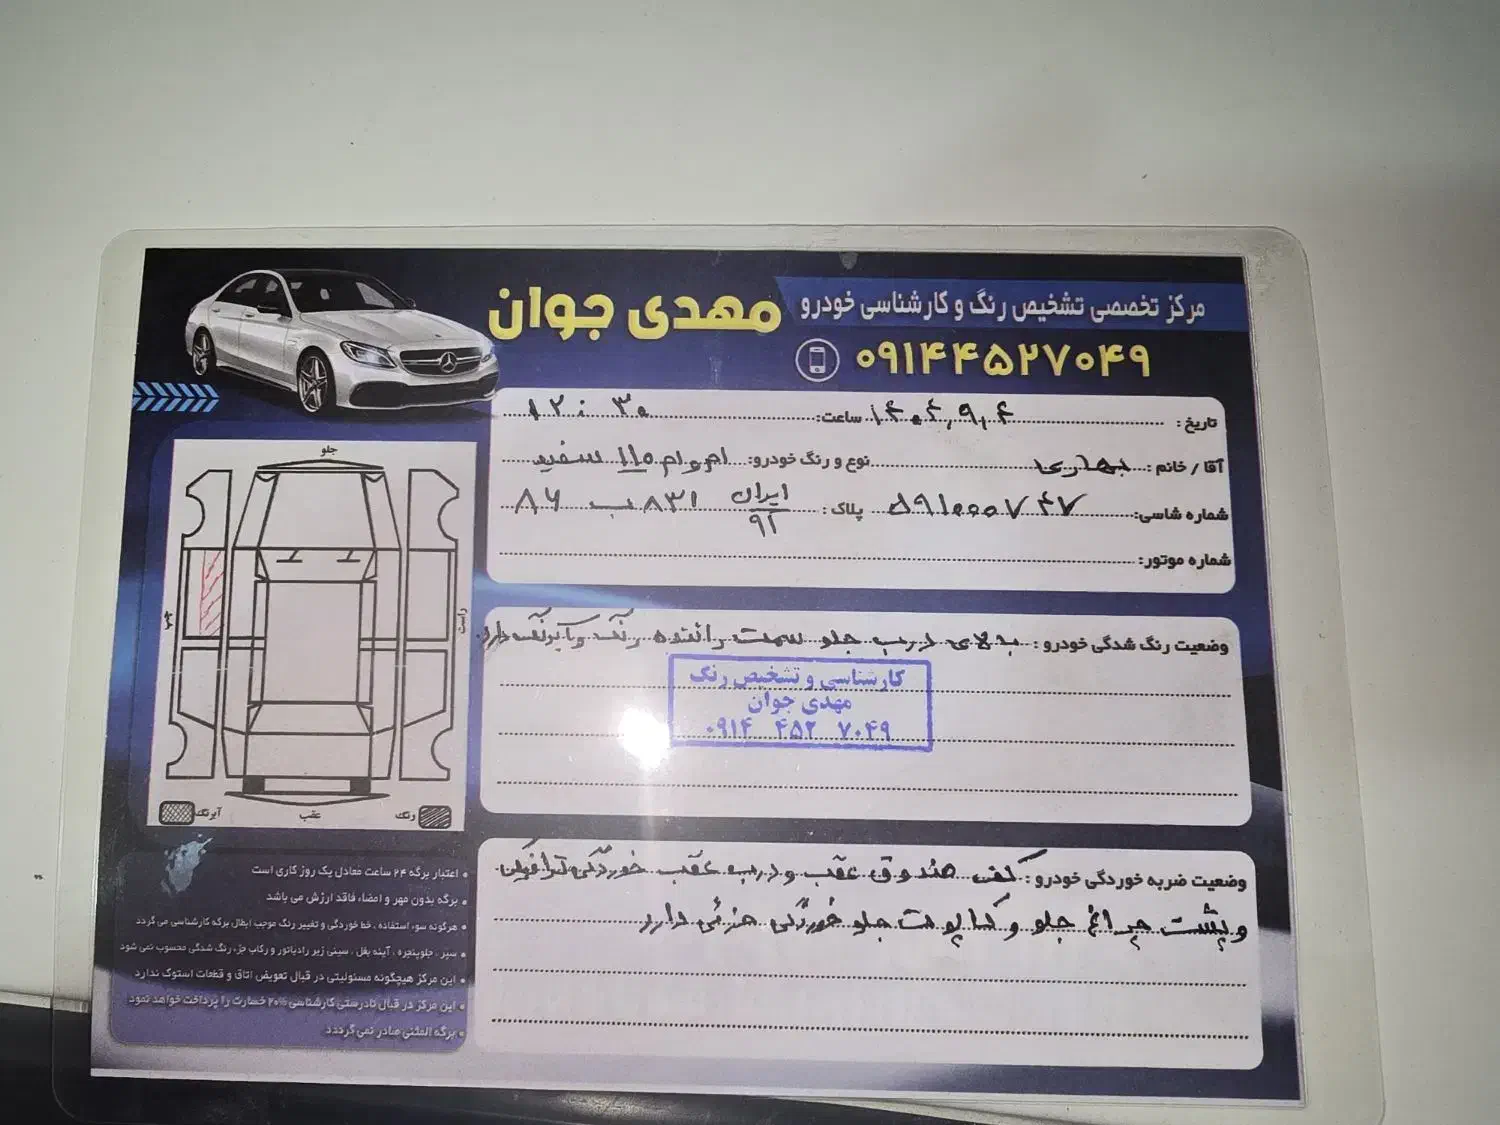 مرکز تخصصی تشخیص رنگ و کارشناسی خودرو
مهدی جوان
۰۹۱۴۴۵۲۷۰۴۹
تاریخ: ۱۴۰۴,۹,۴ ساعت: ۱۲:۳۰
آقا / خانم: بهاری نوع و رنگ خودرو: ام وام ۱۱۰ سفید
شماره شاسی: ۵۹۱۰۰۰۷۴۷ پلاک: ایران ۹۲ ۸۳۱ ب ۸۶
شماره موتور:
وضعیت رنگ شدگی خودرو: بالای درب جلو سمت راننده رنگ و آبرنگ دارد
کارشناسی و تشخیص رنگ
مهدی جوان
۰۹۱۴ ۴۵۲ ۷۰۴۹
وضعیت ضربه خوردگی خودرو: کف صندوق عقب و درب عقب خوردگی
و پشت چراغ جلو و کاپوت جلو خوردگی جزئی دارد
جلو
چپ
راست
عقب
آبرنگ
رنگ
• اعتبار برگه ۲۴ ساعت معادل یک روز کاری است
• برگه بدون مهر و امضاء فاقد ارزش می باشد
• هرگونه سوء استفاده ، خط خوردگی و تغییر رنگ موجب ابطال برگه کارشناسی می گردد
• سپر ، جلوپنجره ، آینه بغل ، سینی زیر رادیاتور و رکاب جزء رنگ شدگی محسوب نمی شود
• این مرکز هیچگونه مسئولیتی در قبال تعویض اتاق و قطعات استوک ندارد
• این مرکز در قبال نادرستی کارشناسی ۲۰% خسارت را پرداخت خواهد نمود
• برگه المثنی صادر نمی گردد